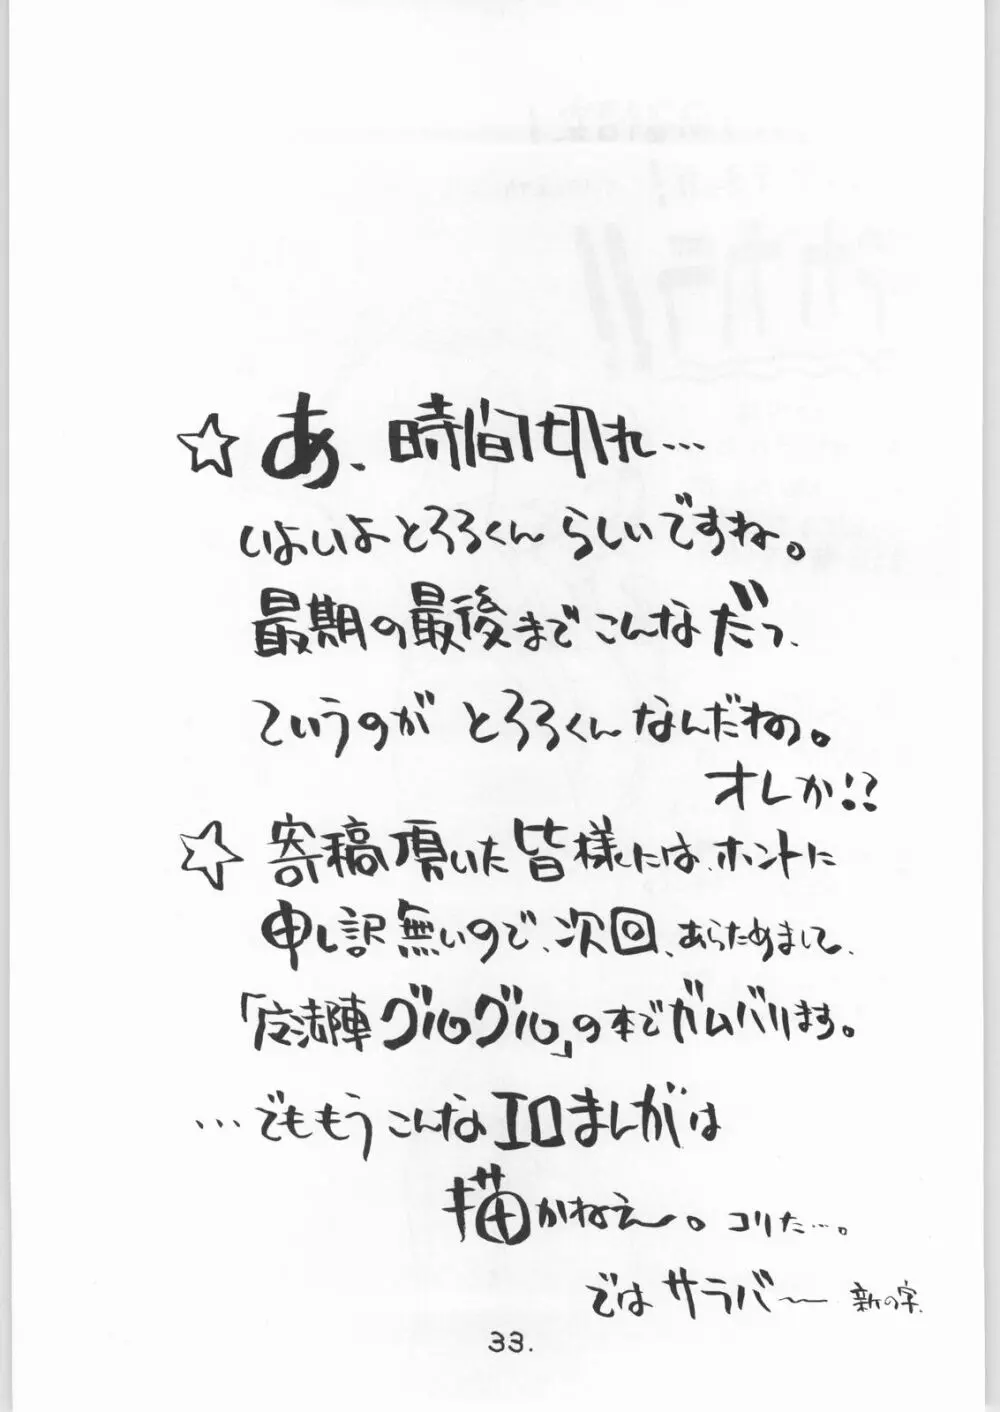 ☆あ、時間切れ…
いよいよとろろくんらしいですね。
最期の最後までこんなだっ、
ていうのがとろろくんなんだわの。
オレか!?
☆寄稿頂いた皆様には、ホントに
申し訳無いので、次回、あらためまして、
「魔法陣グルグル」の本でガムバリます。
…でももうこんなエロまんがは
描かねぇー。コリた…。
ではサラバ〜 新の字.
33.